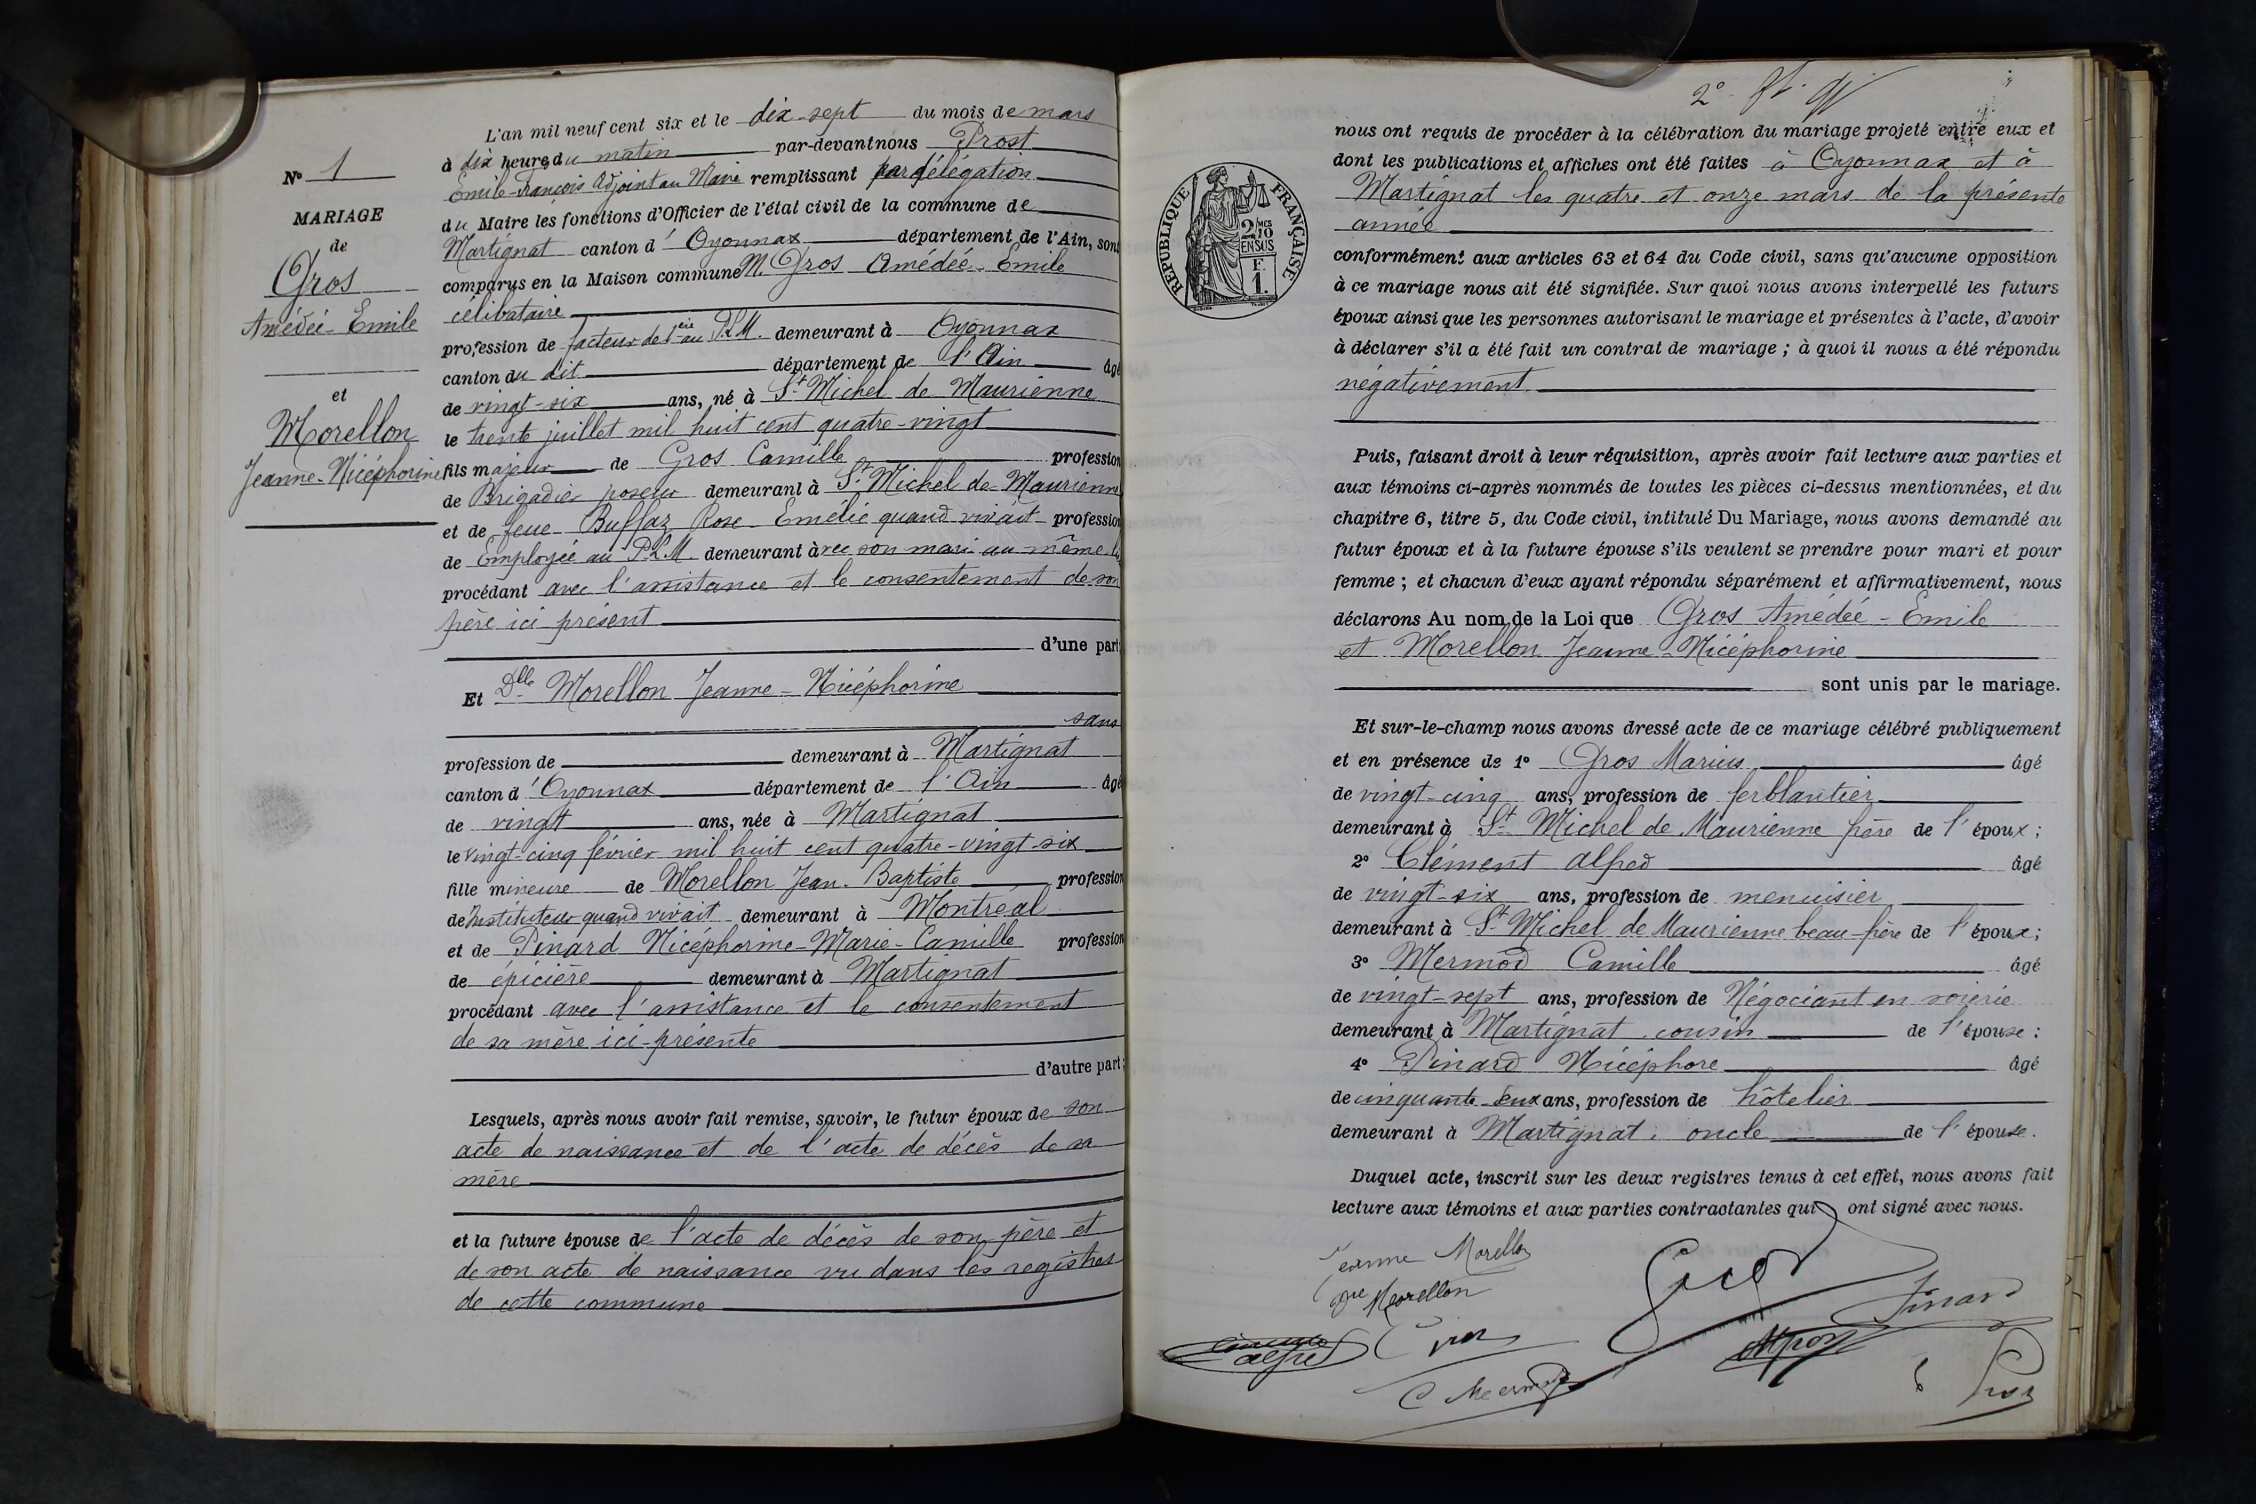 L'an mil neuf cent six et le dix-sept du mois de mars
à dix heures du matin par-devant nous Prost
Emile-François Adjoint au Maire remplissant par délégation
du Maire les fonctions d'Officier de l'état civil de la commune de
Martignat canton d' Oyonnax département de l'Ain, sont
comparus en la Maison commune M. Gros Amédée-Emile
célibataire
profession de facteur de 1ère au P.L.M. demeurant à Oyonnax
canton du dit département de l'Ain âgé
de vingt-six ans, né à St Michel de Maurienne
le trente juillet mil huit cent quatre-vingt
fils majeur de Gros Camille profession
de Brigadier poseur demeurant à St Michel de Maurienne
et de feue Buffaz Rose-Emélie quand vivait profession
de Employée au P.L.M. demeurant avec son mari au même
procédant avec l'assistance et le consentement de son
père ici présent
d'une part;
Et Dlle Morellon Jeanne-Nicéphorine
sans
profession de demeurant à Martignat
canton d' Oyonnax département de l'Ain âgé
de vingt ans, née à Martignat
le vingt-cinq février mil huit cent quatre-vingt-six
fille mineure de Morellon Jean-Baptiste profession
de Instituteur quand vivait demeurant à Montréal
et de Pinard Nicéphorine-Marie-Camille profession
de épicière demeurant à Martignat
procédant avec l'assistance et le consentement
de sa mère ici-présente
d'autre part;
Lesquels, après nous avoir fait remise, savoir, le futur époux de son
acte de naissance et de l'acte de décès de sa
mère
et la future épouse de l'acte de décès de son père et
de son acte de naissance vu dans les registres
de cette commune
No 1
MARIAGE
de
Gros
Amédée-Emile
et
Morellon
Jeanne-Nicéphorine
2°
RÉPUBLIQUE FRANÇAISE
2/10
EN SUS
F.
1.
nous ont requis de procéder à la célébration du mariage projeté entre eux et
dont les publications et affiches ont été faites à Oyonnax et à
Martignat les quatre et onze mars de la présente
année
conformément aux articles 63 et 64 du Code civil, sans qu'aucune opposition
à ce mariage nous ait été signifiée. Sur quoi nous avons interpellé les futurs
époux ainsi que les personnes autorisant le mariage et présentes à l'acte, d'avoir
à déclarer s'il a été fait un contrat de mariage ; à quoi il nous a été répondu
négativement
Puis, faisant droit à leur réquisition, après avoir fait lecture aux parties et
aux témoins ci-après nommés de toutes les pièces ci-dessus mentionnées, et du
chapitre 6, titre 5, du Code civil, intitulé Du Mariage, nous avons demandé au
futur époux et à la future épouse s'ils veulent se prendre pour mari et pour
femme ; et chacun d'eux ayant répondu séparément et affirmativement, nous
déclarons Au nom de la Loi que Gros Amédée-Emile
et Morellon Jeanne-Nicéphorine
sont unis par le mariage.
Et sur-le-champ nous avons dressé acte de ce mariage célébré publiquement
et en présence de 1° Gros Marius âgé
de vingt-cinq ans, profession de ferblantier
demeurant à St Michel de Maurienne frère de l'époux;
2° Clément Alfred âgé
de vingt-six ans, profession de menuisier
demeurant à St Michel de Maurienne beau-frère de l'époux;
3° Mermod Camille âgé
de vingt-sept ans, profession de Négociant en soierie
demeurant à Martignat cousin de l'épouse;
4° Pinard Nicéphore âgé
de cinquante-deux ans, profession de hôtelier
demeurant à Martignat, oncle de l'épouse.
Duquel acte, inscrit sur les deux registres tenus à cet effet, nous avons fait
lecture aux témoins et aux parties contractantes qui ont signé avec nous.
Jeanne Morellon
Vve Morellon
Pinard
Alfred
C Mermod
Prost